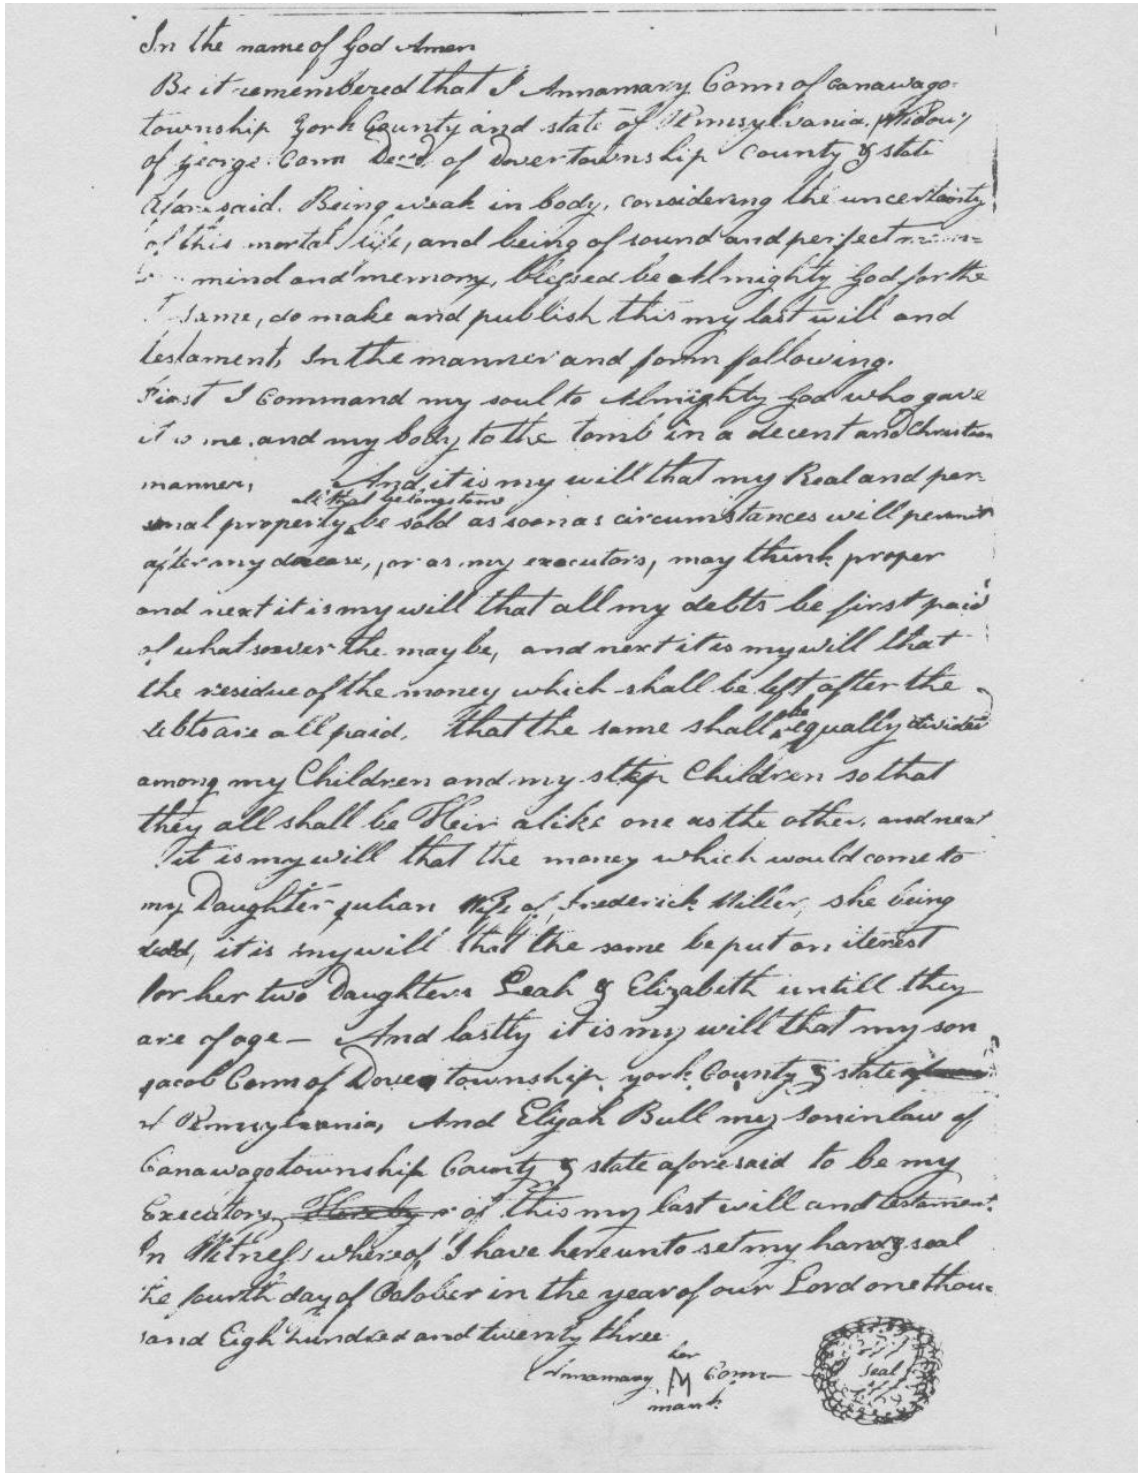 In the name of God Amen
Be it remembered that I Annamary Conn of Canawago
township York County and state of Pennsylvania, Widow
of George Conn Decd. of Dover township County & state
afore said. Being weak in body, considering the uncertainty
of this mortal life, and being of sound and perfect
mind and memory, blessed be Almighty God for the
same, do make and publish this my last will and
testament, In the manner and form following.
First I Command my soul to Almighty God who gave
it to me and my body to the tomb in a decent and Christian
manner, And it is my will that my Real and per-
all that belongs to me
sonal property be sold as soon as circumstances will permit
after my decease, or as my executors, may think proper
and next it is my will that all my debts be first paid
of what soever the may be, and next it is my will that
the residue of the money which shall be left after the
debts are all paid. that the same shall be equally divided
among my Children and my step Children so that
they all shall be Heir alike one as the other, and next
it is my will that the money which would come to
my Daughter julian Wife of Frederick Miller, she being
dead, it is my will that the same be put on iterest
for her two Daughters Leah & Elizabeth untill they
are of age – And lastly it is my will that my son
jacob Conn of Dover township york County & state
of Pennsylvania, And Elijah Bull my son in law of
Canawago township County & state aforesaid to be my
Executors Hereby of this my last will and testament.
In Witness whereof I have hereunto set my hand & seal
the fourth day of October in the year of our Lord one thou-
sand Eigh hundred and twenty three
her
Annamary M Conn seal
mark